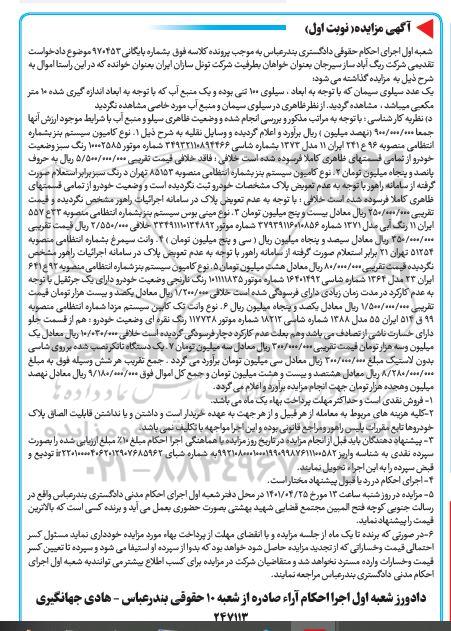 آگهی مزایده( نوبت اول)
شعبه اول اجرای احکام حقوقی دادگستری بندرعباس به موجب پرونده کلاسه فوق بشماره بایگانی ۹۷۰۴۵۳ موضوع دادخواست
تقدیمی شرکت ریگ آباد ساز سیرجان بعنوان خواهان بطرفیت شرکت تونل سازان ایران بعنوان خوانده که در این راستا اموال به
شرح ذیل به مزایده گذاشته می شود:
یک عدد سیلوی سیمان که با توجه به ابعاد ، سیلوی ۱۰۰ تنی بوده و یک منبع آب که با توجه به ابعاد اندازه گیری شده ۱۰ متر
مکعبی میباشد ، مشاهده گردید. از نظر ظاهری در سیلوی سیمان و منبع آب مورد خاصی مشاهده نگردید
د) نظریه کارشناس : با توجه به مراتب مذکور و بررسی انجام شده و وضعیت ظاهری سیلو و منبع آب با شرایط موجود ارزش آنها
جمعا ۹۰۰/۰۰۰/۰۰۰ (نهصد میلیون ) ریال برآورد و اعلام گردیده و وسایل نقلیه به شرح ذیل ۱. نوع کامیون سیستم بنز بشماره
انتظامی منصوبه ۹۶ ع ۲۴۱ ایران ۱۱ مدل ۱۳۷۳ بشماره شاسی شماره موتور ۱۰۰۰۲۵۸۵ رنگ سبز وضعیت
خودرو از تمامی قسمتهای ظاهری کاملا فرسوده شده است خلافی : فاقد خلافی قیمت تقریبی ۵/۵۰۰/۰۰۰/۰۰۰ ریال به حروف
پانصد و پنجاه میلیون تومان ۲. نوع کامیون سیستم بنز بشماره انتظامی منصوبه ۸۵۱۵۳ تهران د رنگ سبز برابر استعلام صورت
گرفته از سامانه راهور با توجه به عدم تعویض پلاک مشخصات خودرو ثبت نگردیده است و وضعیت خودرو از تمامی قسمتهای
ظاهری کاملا فرسوده شده است خلافی : با توجه به عدم تعویض پلاک در سامانه اجرائیات راهور مشخص نگردیده و قیمت
تقریبی ۲۵۰/۰۰۰/۰۰۰ ریال معادل بیست و پنج میلیون تومان ۳. نوع مینی بوس سیستم بنز بشماره انتظامی منصوبه ۳۳ ع ۵۵۷
ایران ۱۱ رنگ آبی مدل ۱۳۷۱ شماره شاسی ۳۷۹۳۹۱۱۶۰۱۰۸۵۶ شماره موتور خلافی ۲/۵۵۰/۰۰۰ ریال قیمت تقریبی
۳۵۰/۰۰۰/۰۰۰ ریال معادل سیصد و پنجاه میلیون ریال ( سی و پنج میلیون تومان ) ۴. وانت سیمرغ بشماره منصوبه
۵۱۲۵۴ تهران ۲۱ برابر استعلام صورت گرفته از سامانه راهور با توجه به عدم تعویض پلاک در سامانه اجرائیات راهور مشخص
نگردیده قیمت تقریبی ۸۰/۰۰۰/۰۰۰ ریال معادل هشت میلیون تومان ۵. نوع کامیون سیستم بنز بشماره انتظامی منصوبه ۹۲ ع ۶۴۱
ایران ۲۳ مدل ۱۳۶۴ شماره شاسی ۱۶۴۰۱۴۹۲ شماره موتور ۱۰۱۱۱۸۷۵ رنگ نارنجی وضعیت خودرو دارای یک جرثقیل با توجه
به عدم کارکرد در مدت زمان زیادی دارای فرسودگی شده است خلافی ۱/۲۰۰/۰۰۰ ریال معادل یکصد و بیست هزار تومان قیمت
تقریبی ۱/۵۰۰/۰۰۰/۰۰۰ ریال معادل یکصد و پنجاه میلیون ریال ۶. نوع وانت تک کابین سیستم مزدا شماره انتظامی منصوبه
۹۹ ق ۵۱۴ ایران ۵۵ مدل ۱۳۸۸ شماره شاسی ۱۸۲۱۲ شماره موتور ۱۱۷۷۲۸ رنگ نقره ای وضعیت خودرو : هم از قسمت جلو
دارای خسارت ناشی از تصادف می باشد و هم بعلت عدم کارکرد دچار فرسودگی گردیده است خلافی ۱۰/۰۳۰/۰۰۰ ریال معادل یک
میلیون وسه هزار تومان قیمت تقریبی ۳۰۰/۰۰۰/۰۰۰ ریال معادل سی میلیون تومان ۷. یک دستگاه تانکر نصب شده بر روی شاسی
بدون لاستیک مبلغ ۳۰۰/۰۰۰/۰۰۰ ریال معادل سی میلیون تومان برآورد می گردد . جمع تقریب هر شش وسیله فوق به مبلغ
۸/۲۸۰/۰۰۰/۰۰۰ ریال معادل هشتصد و بیست و هشت میلیون تومان و جمع کل اموال فوق ۹/۱۸۰/۰۰۰/۰۰۰ ریال معادل نهصد
میلیون وهجده هزار تومان جهت انجام مزایده برآورد و اعلام می گردد.
۱- فروش نقدی است و حداکثر مهلت پرداخت بهاء یک ماه می باشد.
۲-کلیه هزینه های مربوط به معامله از هر قبیل و از هر جهت به عهده خریدار است و داشتن و یا نداشتن قابلیت الصاق پلاک
خودروها تابع مقررات پلیس راهور و مراجع قانونی بوده و این اجرا مواجهه با تکلیف نمی باشد.
۳- پیشنهاد دهندگان باید قبل از انجام مزایده در تاریخ روز مزایده با هماهنگی اجرا احکام مبلغ ۱۰٪ مبلغ ارزیابی شده را بصورت
سپرده نقدی به شناسه واریز به شماره شبای تودیع و
قبض سپرده را به این اجراء تحویل نمایند.
۴- اجرای احکام در رد یا قبول پیشنهاد مختار است.
۵- مزایده در روز شنبه ساعت ۱۳ مورخ ۱۴۰۱/۰۴/۲۵ در محل دفتر شعبه اول اجرای احکام مدنی دادگستری بندرعباس واقع در
رسالت جنوبی کوچه فتح المبین مجتمع قضایی شهید بهشتی بصورت حضوری بعمل می آید و برنده کسی است که بالاترین
قیمت را پیشنهاد نماید.
۶-در صورتی که برنده تا یک ماه از جلسه مزایده و با انقضای مهلت از پرداخت بهاء مورد مزایده خودداری نماید مسئول کسر
احتمالی قیمت وخساراتی که از تجدید مزایده حاصل شود خواهد بود که بدوا از سپرده او استیفا می شود و سپرده تا تعیین کسر
قیمت وخسارات وارده مسترد نخواهد شد و متقاضیان شرکت در مزایده برای کسب اطلاع بیشتر می توانند به شعبه اول اجرای
احکام مدنی دادگستری بندرعباس مراجعه نمایند.
دادورز شعبه اول اجرا احکام آراء صادره از شعبه ۱۰ حقوقی بندرعباس - هادی جهانگیری
۲۴۷۱۱۳